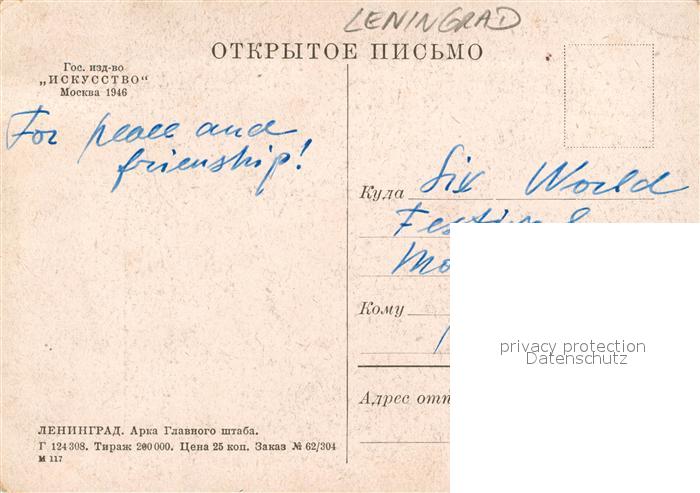 LENINGRAD
ОТКРЫТОЕ ПИСЬМО
Гос. изд-во
„ИСКУССТВО“
Москва 1946
For peace and
frienship!
Куда Six World
Кому
Адрес отп
ЛЕНИНГРАД. Арка Главного штаба.
Г 124308. Тираж 200000. Цена 25 коп. Заказ № 62/304
М 117
privacy protection
Datenschutz